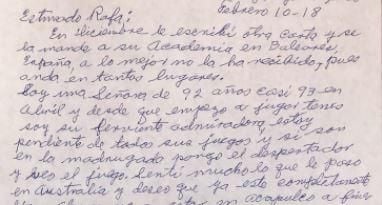 Febrero 10-18
Estimado Rafa:
En diciembre le escribí otra carta y se
la mande a su Academia en Baleares,
España, a lo mejor no la ha recibido, pues
anda en tantos lugares.
Soy una Señora de 92 años casi 93 en
Abril y desde que empezo a jugar tenis
soy su ferviente admiradora, estoy
pendiente de todos sus juegos y si son
en la madrugada pongo el despertador
y veo el juego. Sentí mucho lo que le paso
en Australia y deseo que ya este completamente
en acapulco a